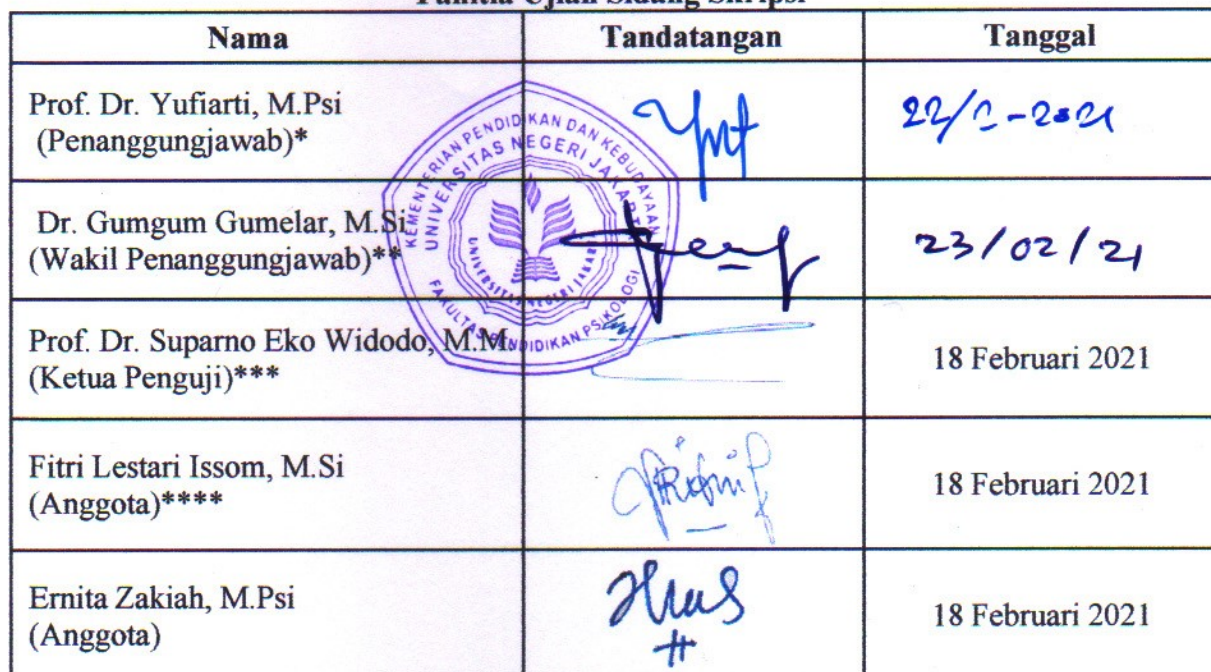 Panitia Ujian Sidang Skripsi
Nama Tandatangan Tanggal
Prof. Dr. Yufiarti, M.Psi
(Penanggungjawab)*
22/2-2021
Dr. Gumgum Gumelar, M.Si
(Wakil Penanggungjawab)**
23/02/21
Prof. Dr. Suparno Eko Widodo, M.M.
(Ketua Penguji)***
18 Februari 2021
Fitri Lestari Issom, M.Si
(Anggota)****
18 Februari 2021
Ernita Zakiah, M.Psi
(Anggota)
18 Februari 2021
KEMENTERIAN PENDIDIKAN DAN KEBUDAYAAN
UNIVERSITAS NEGERI JAKARTA
UNIVERSITAS NEGERI JAKARTA
FAKULTAS PENDIDIKAN PSIKOLOGI